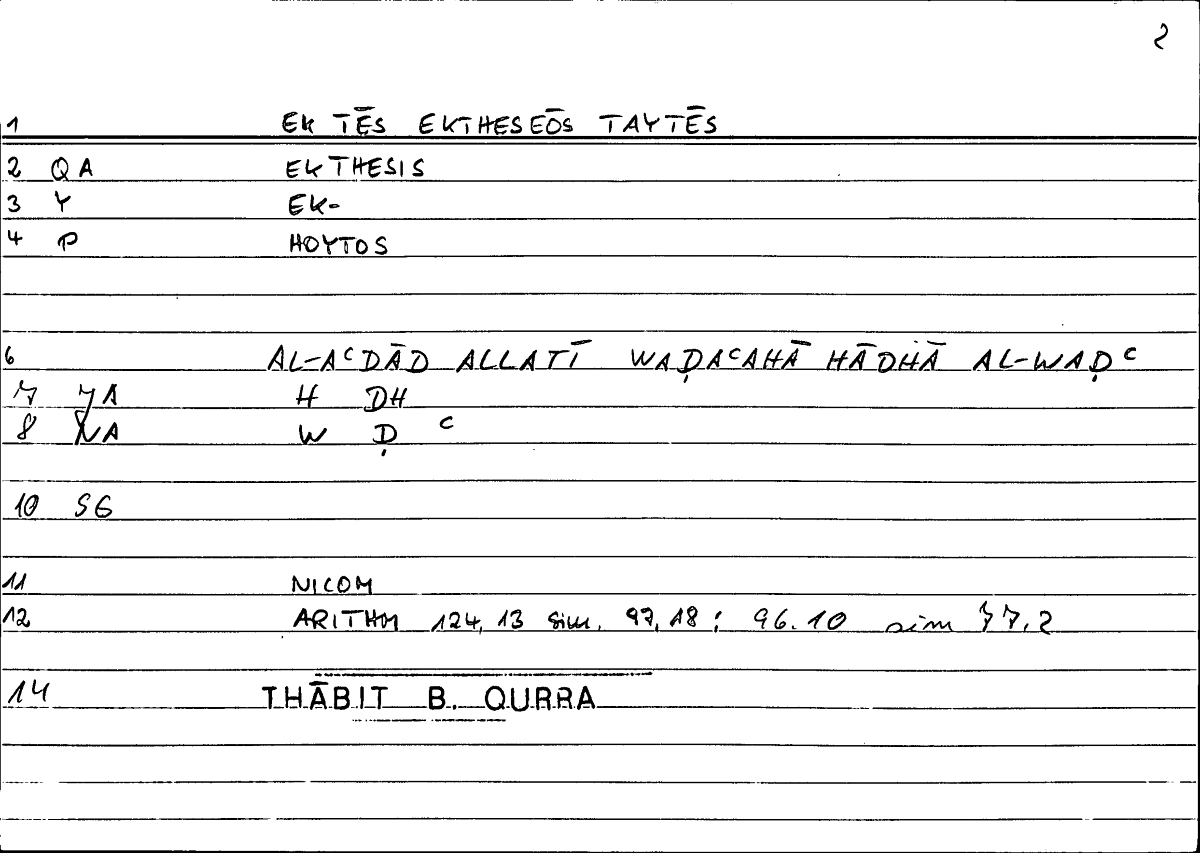 2
1 EK TĒS EKTHESEŌS TAYTĒS
2 QA EKTHESIS
3 Y EK-
4 P HOYTOS
6 AL-AᶜDĀD ALLATĪ WAḌAᶜAHĀ HĀDHĀ AL-WAḌᶜ
7 JA H DH
8 NA W Ḍ ᶜ
10 SG
11 NICOM
12 ARITHM 124,13 sim. 97,18; 96.10 sim 77,2
14 THĀBIT B. QURRA